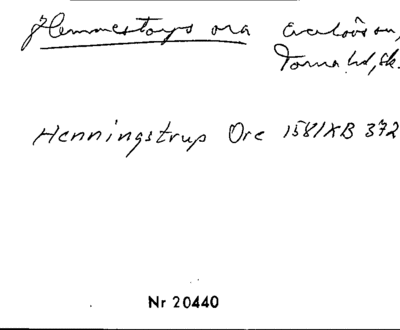 Hemmestorps ora Everlövs sn,
Torna hd, Sk.
Henningstrup Ore 1581 KB 372
Nr 20440